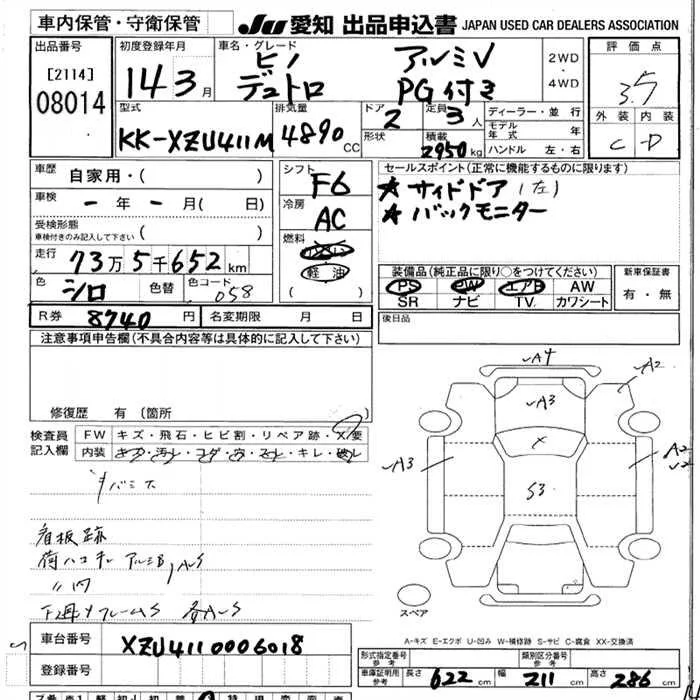 車内保管・守衛保管
JU 愛知 出品申込書 JAPAN USED CAR DEALERS ASSOCIATION
出品番号
[2114]
08014
初度登録年月
14 3 月
車名・グレード
ヒノ アルミV
デュトロ PG付き
2WD
・
4WD
評価点
3.5
外装 内装
C D
型式
KK-XZU411M
排気量
4890 CC
ドア
2
形状
定員
3 人
積載
2950 kg
ディーラー・並行
モデル年式 年
ハンドル 左・右
車歴
自家用・( )
車検
ー 年 ー 月( 日)
受検形態
車検付きのみ記入して下さい ( )
走行
73万5千652 km
色
シロ
色替
色コード
058
シフト
F6
冷房
AC
燃料
軽油
( )
セールスポイント(正常に機能するものに限ります)
★ サイドドア(左)
★ バックモニター
装備品(純正品に限り○をつけてください)
PS PW エアB AW
SR ナビ TV カワシート
新車保証書
有・無
R券 8740 円 名変期限 月 日
後日品
注意事項申告欄(不具合内容等は具体的に記入して下さい)
修復歴 有(箇所 )
検査員記入欄
FW キズ・飛石・ヒビ割・リペア跡・X要
内装 キズ・汚レ・コゲ・穴・スレ・キレ・破レ
看板跡
A4
A2
A3
X
A3
S3
A2
スペア
A-キズ E-エクボ U-凹み W-補修跡 S-サビ C-腐食 XX-交換済
車台番号 XZU4110006018
登録番号
形式指定番号 参考
類別区分番号 参考
車庫証明用 参考 長さ 622 cm 幅 211 cm 高さ 286 cm